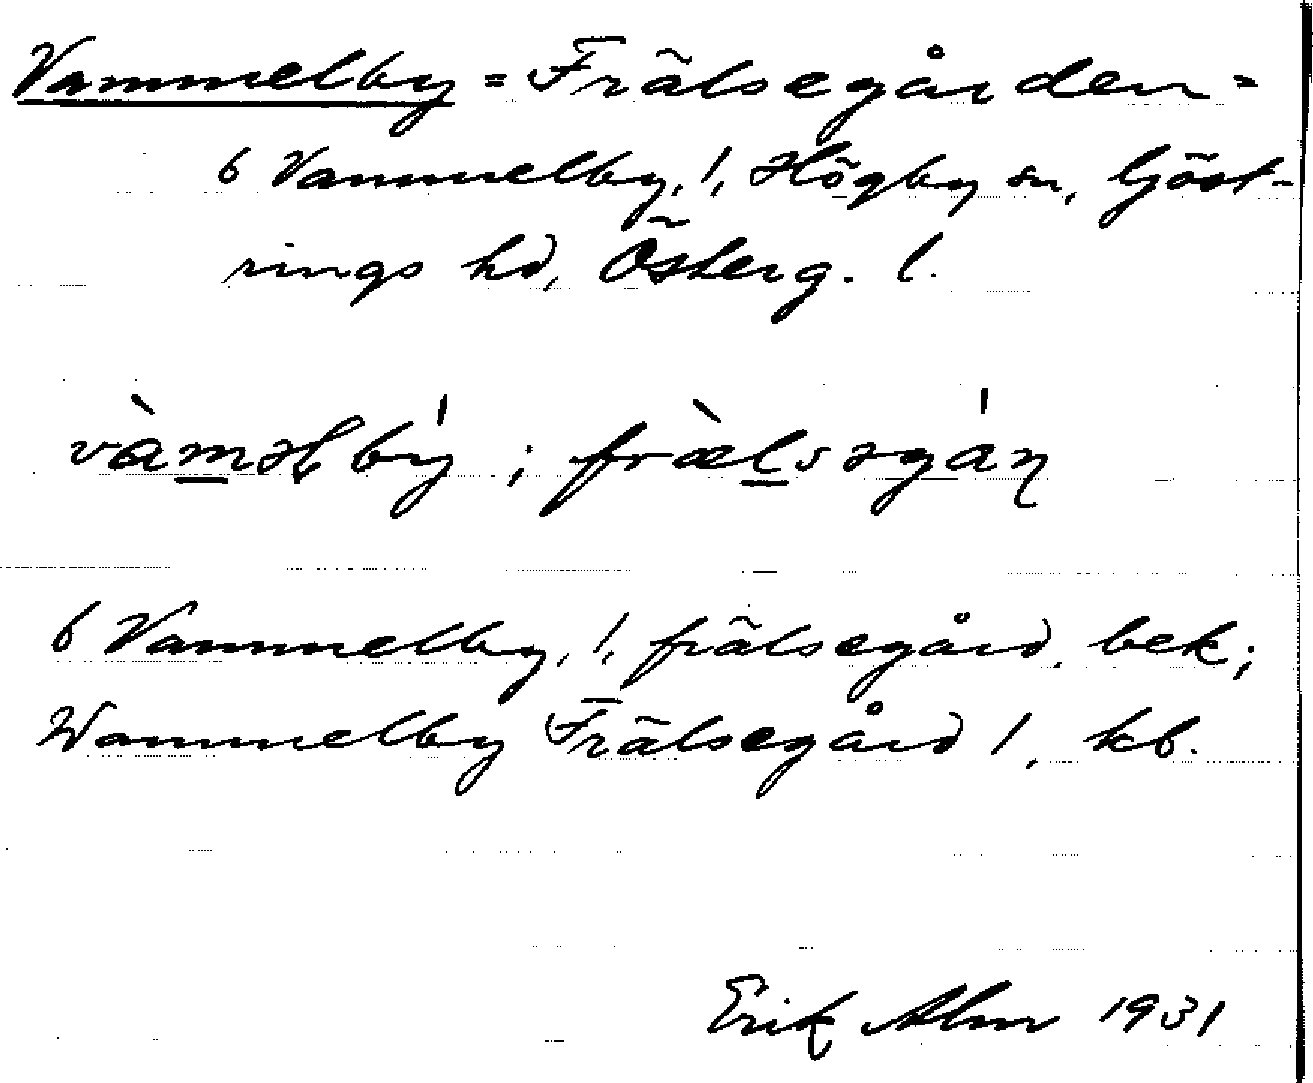 Vammelby = Frälsegården =
6 Vammelby, 1, Högby sn, Göst-
rings hd, Österg. l.
vàməɫbý; frælsəgáɳ
6 Vammelby, 1, frälsegård, bek;
Wammelby Frälsegård 1, kb.
Erik Alm 1931